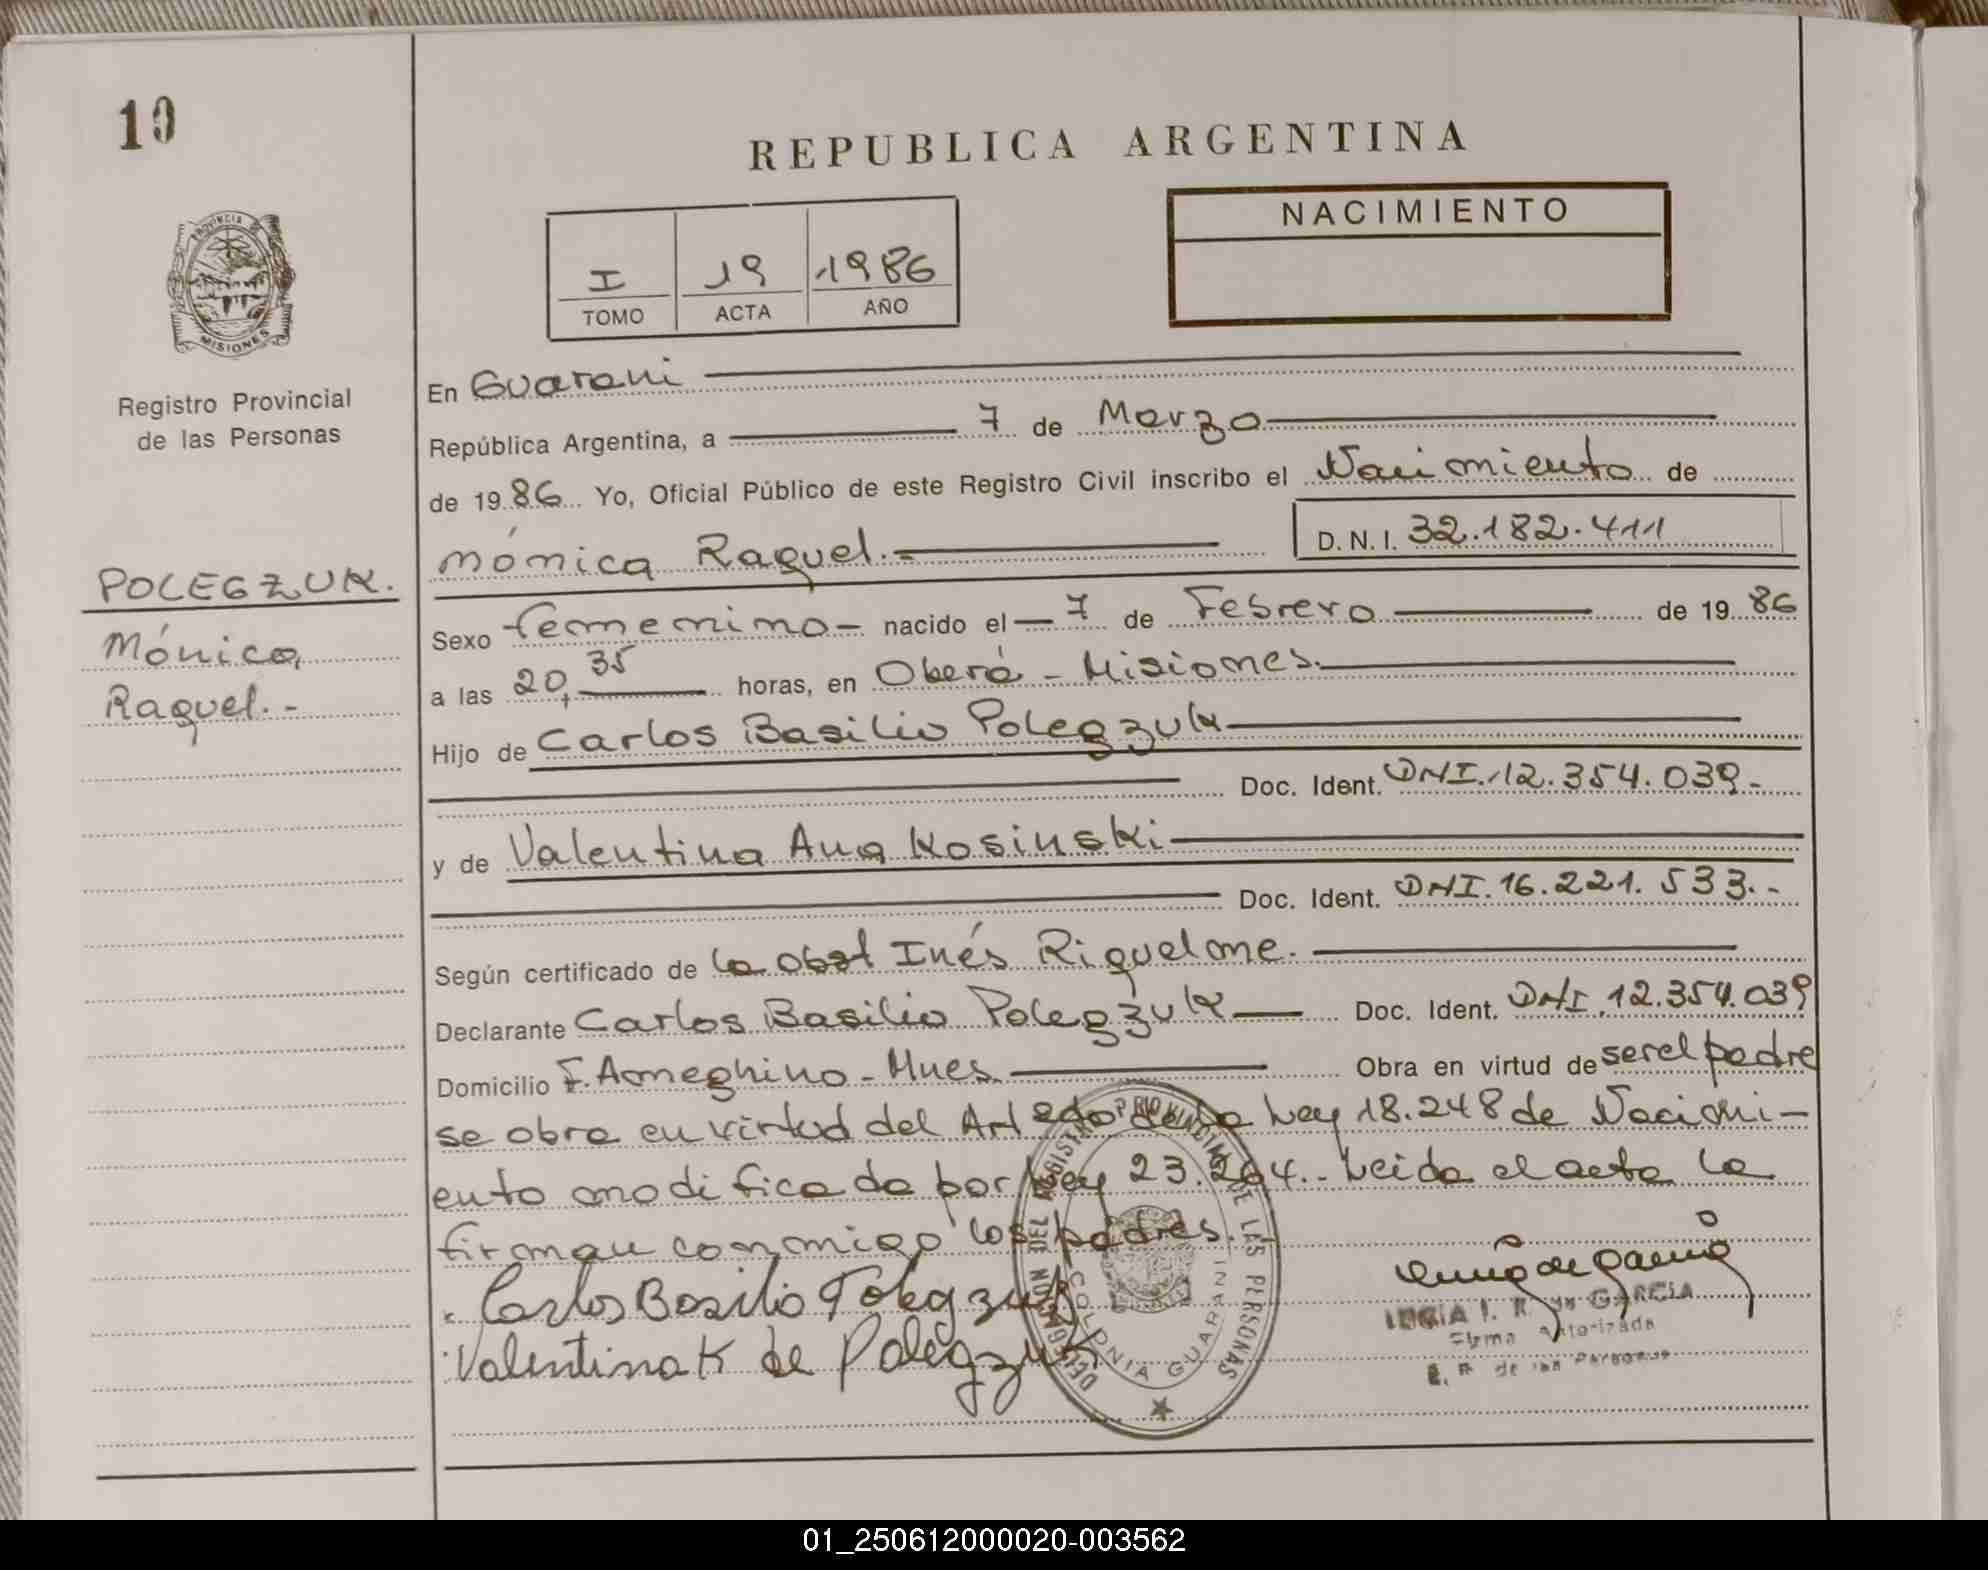 10
REPUBLICA ARGENTINA
NACIMIENTO
I 19 1986
TOMO ACTA AÑO
PROVINCIA DE
MISIONES
Registro Provincial
de las Personas
POLEGZUK.
Mónica,
Raquel.-
En Guarani
República Argentina, a 7 de Marzo
de 1986 Yo, Oficial Público de este Registro Civil inscribo el Nacimiento de
Mónica Raquel.- D.N.I. 32.182.411
Sexo femenino- nacido el - 7 de Febrero de 1986
a las 20,35 horas, en Oberá - Misiones.
Hijo de Carlos Basilio Polegzuk
Doc. Ident. DNI.12.354.039.-
y de Valentina Ana Kosinski
Doc. Ident. DNI.16.221.533.-
Según certificado de la obst Inés Riquelme.
Declarante Carlos Basilio Polegzuk Doc. Ident. DNI.12.354.039
Domicilio F. Ameghino - Mnes. Obra en virtud de ser el padre
se obra en virtud del Art 2do de la Ley 18.248 de Nacimi-
ento modificada por Ley 23.264.- Leida el acta la
firman conmigo los padres.
Carlos Basilio Polegzuk
Valentina K de Polegzuk
DELEGACION DEL REGISTRO PROVINCIAL DE LAS PERSONAS
COLONIA GUARANI
GARCIA
Firma Autorizada
R. P. de las Personas
01_250612000020-003562